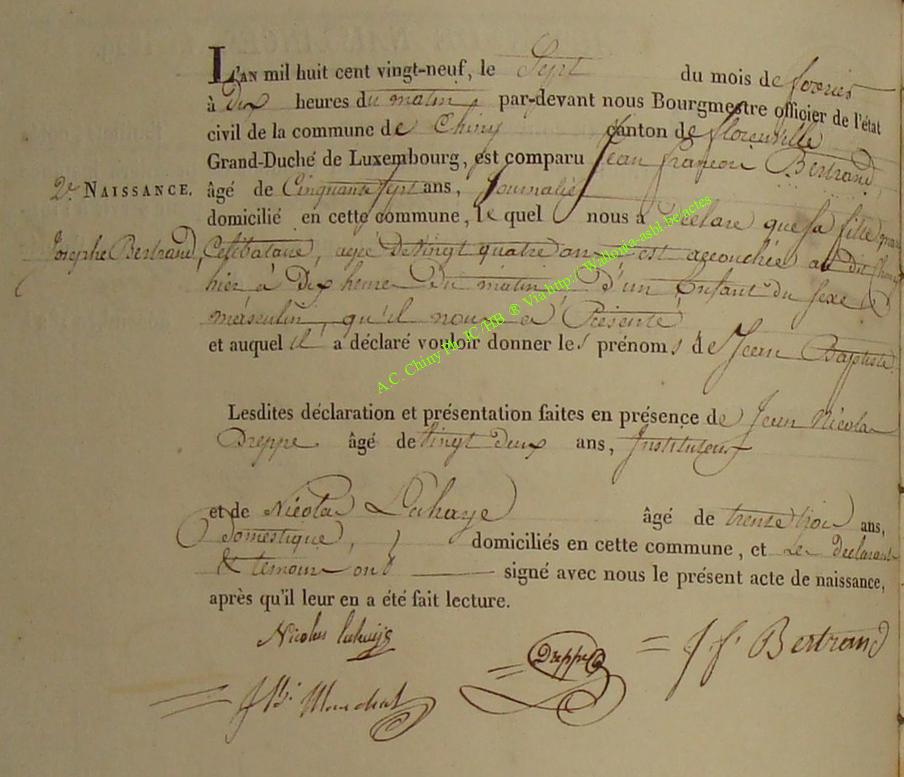 L'AN mil huit cent vingt-neuf, le Sept du mois de fevrier
à Dix heures du matin par-devant nous Bourgmestre officier de l'état
civil de la commune de Chiny canton de florenville
Grand-Duché de Luxembourg, est comparu Jean françois Bertrand,
2e. NAISSANCE. âgé de Cinquante sept ans, Journalier
domicilié en cette commune, le quel nous a Declare que sa fille
Josephe Bertrand, Celibataire, agée de vingt quatre ans est accouchée au dit Chiny
hier à Dix heures Du matin D'un Enfant Du sexe
masculin, qu'il nous a Présenté
et auquel il a déclaré vouloir donner les prénoms de Jean Baptiste.
Lesdites déclaration et présentation faites en présence de Jean Nicolas
Dreppe âgé de vingt deux ans, Instituteur
et de Nicolas Lahaye âgé de trente trois ans,
Domestique, domiciliés en cette commune, et Le declarant
& temoins ont signé avec nous le présent acte de naissance,
après qu'il leur en a été fait lecture.
Nicolas lahaye
Dreppe
J f Bertrand
A.C. Chiny Ph. JC /HB ® Via http:// Wallonia-asbl.be/actes